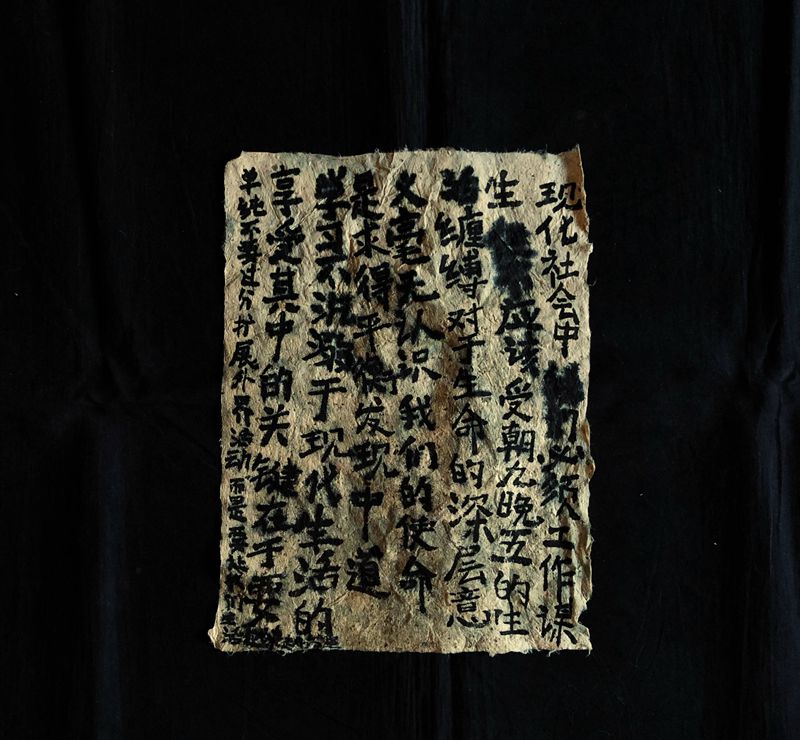 现化社会中 必须人工作谋
生 应该受朝九晚五的生
缠缚对于生命的深层意
义毫无认识我们的使命
是求得平衡发现中道
学习不沉溺于现代生活的
享受其中的关键在于要
单纯不要过分扩展外界活动而是要